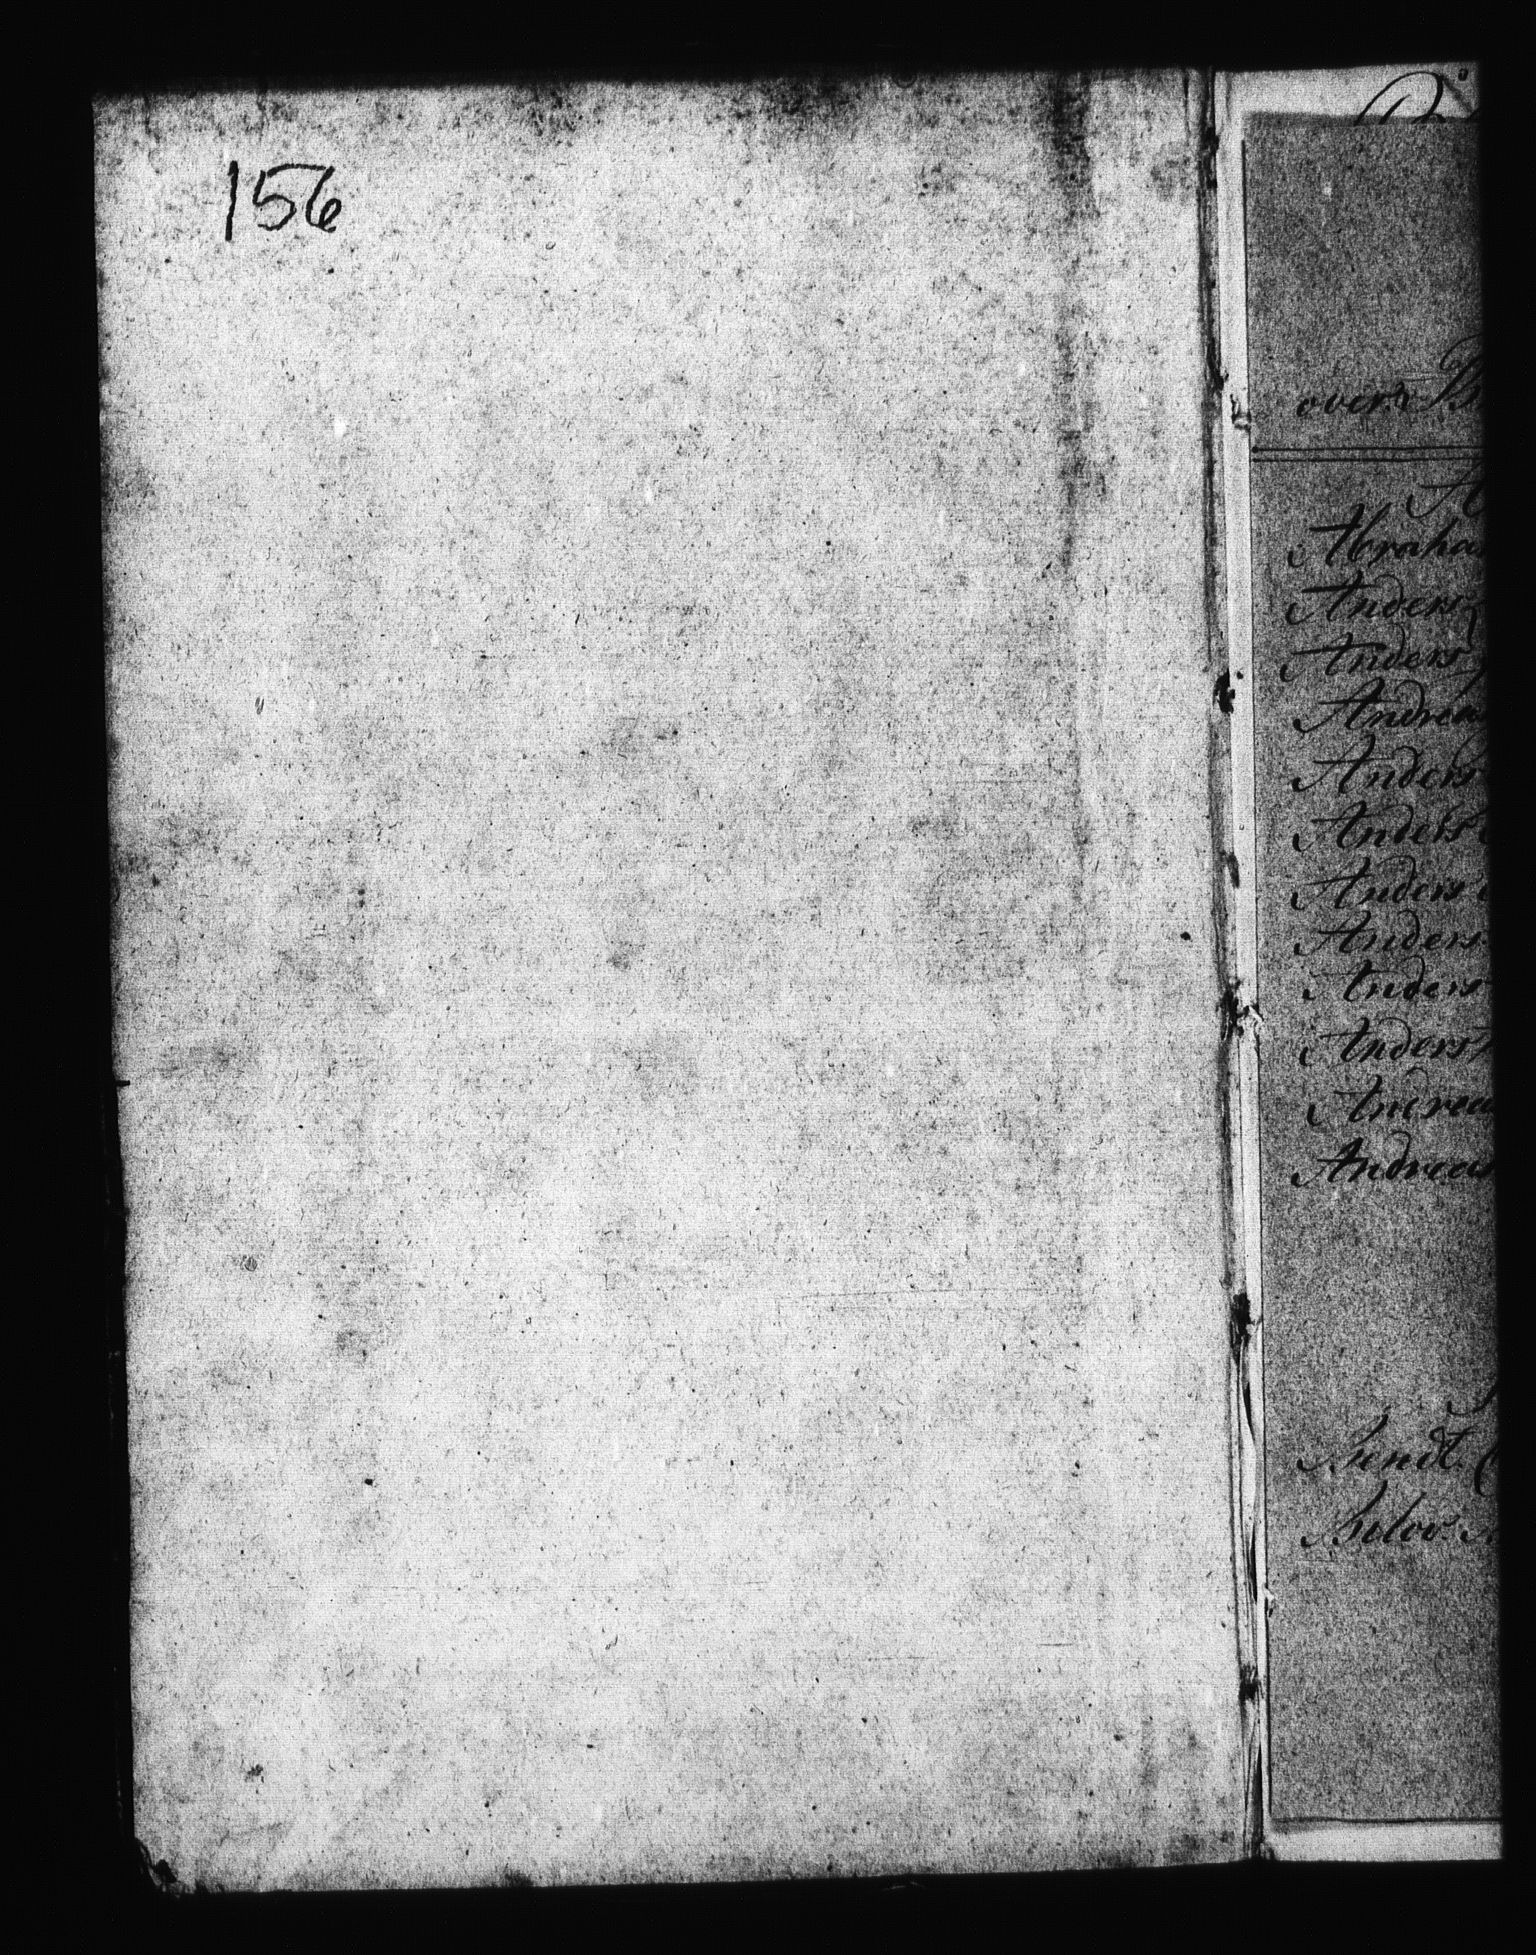 156
over
A
Abraha
Anders
Anders
Andrea
Anders
Anders
Anders
Anders
Anders
Anders
Andrea
Andreas
Bendt